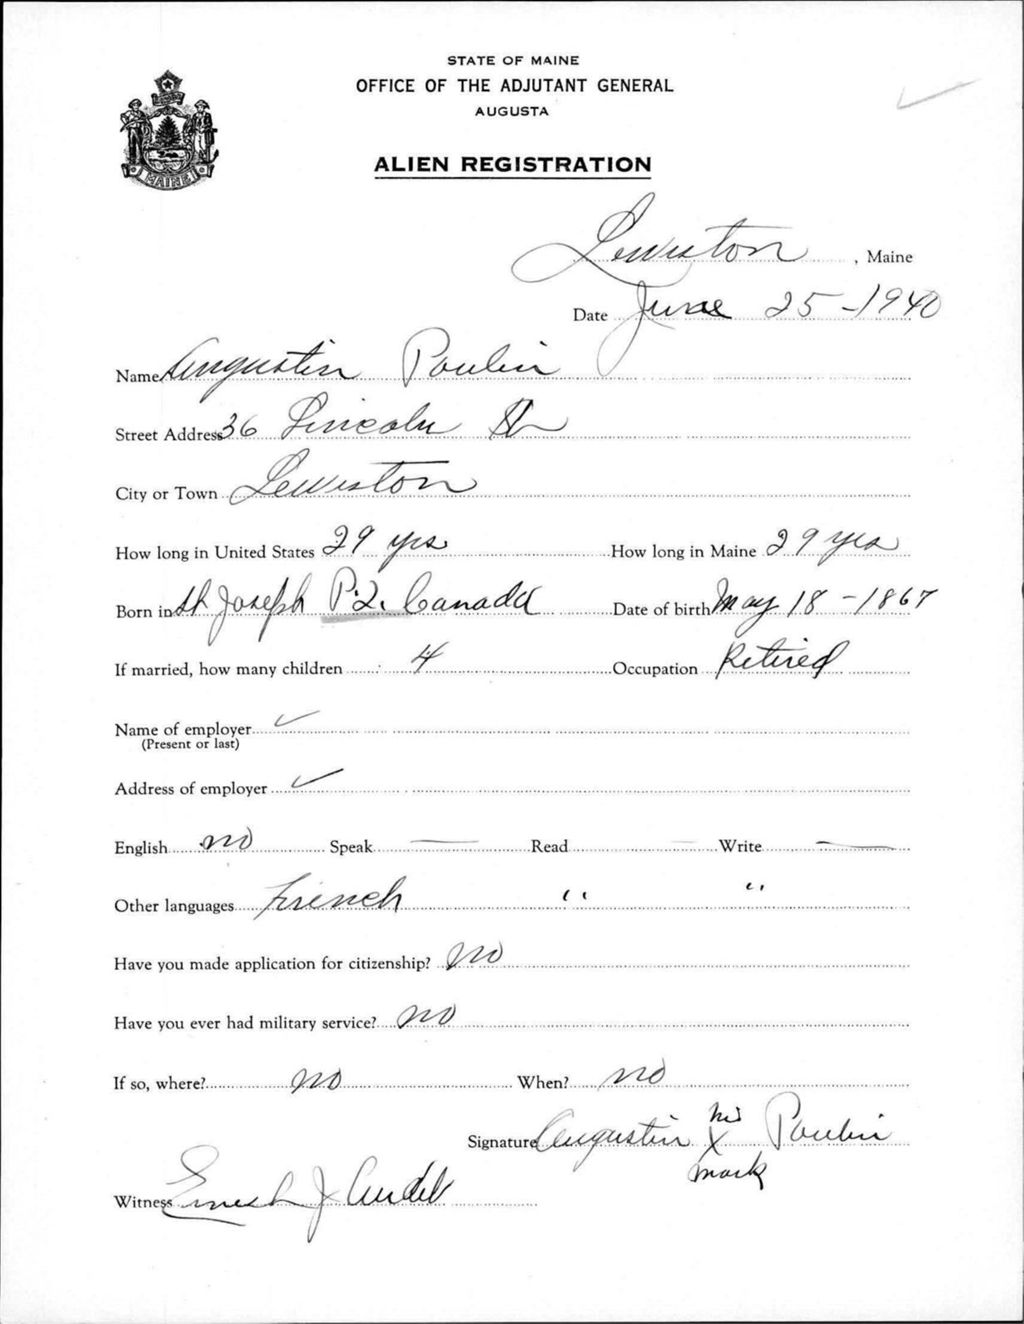 STATE OF MAINE
OFFICE OF THE ADJUTANT GENERAL
AUGUSTA
ALIEN REGISTRATION
MAINE
Lewiston, Maine
Date June 25-1940
Name Augustin Poulin
Street Address 36 Lincoln St
City or Town Lewiston
How long in United States 29 yrs How long in Maine 29 yrs
Born in St Joseph P.Q. Canada Date of birth May 18-1867
If married, how many children 4 Occupation Retired
Name of employer ✓
(Present or last)
Address of employer ✓
English no Speak — Read — Write —
Other languages French " "
Have you made application for citizenship? no
Have you ever had military service? no
If so, where? no When? no
Signature Augustin his X Poulin
mark
Witness J